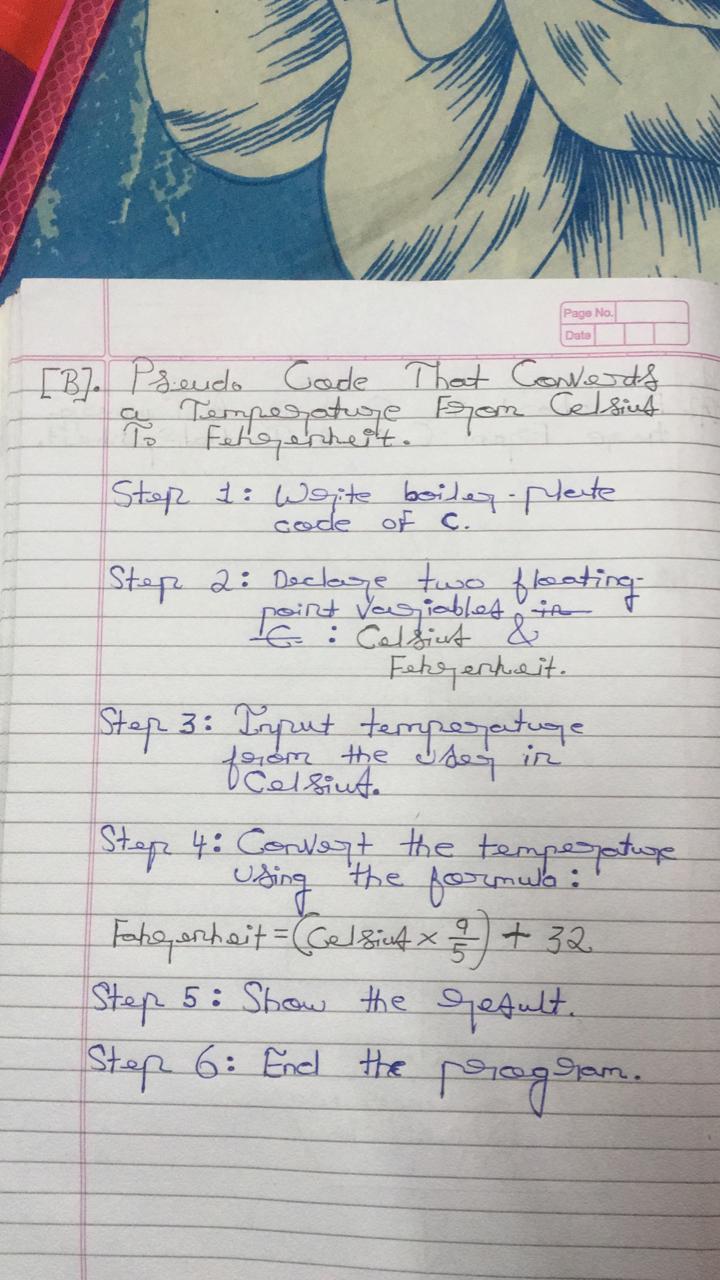 Page No.
Date
[B]. Pseudo Code That Converts
a Temperature From Celsius
To Fehrenheit.
Step 1: Write boiler-plate
code of C.
Step 2: Declare two floating-
point variables in
C : Celsius &
Fehrenheit.
Step 3: Input temperature
from the user in
Celsius.
Step 4: Convert the temperature
using the formula:
Fahrenheit = (Celsius × 9/5) + 32
Step 5: Show the result.
Step 6: End the program.